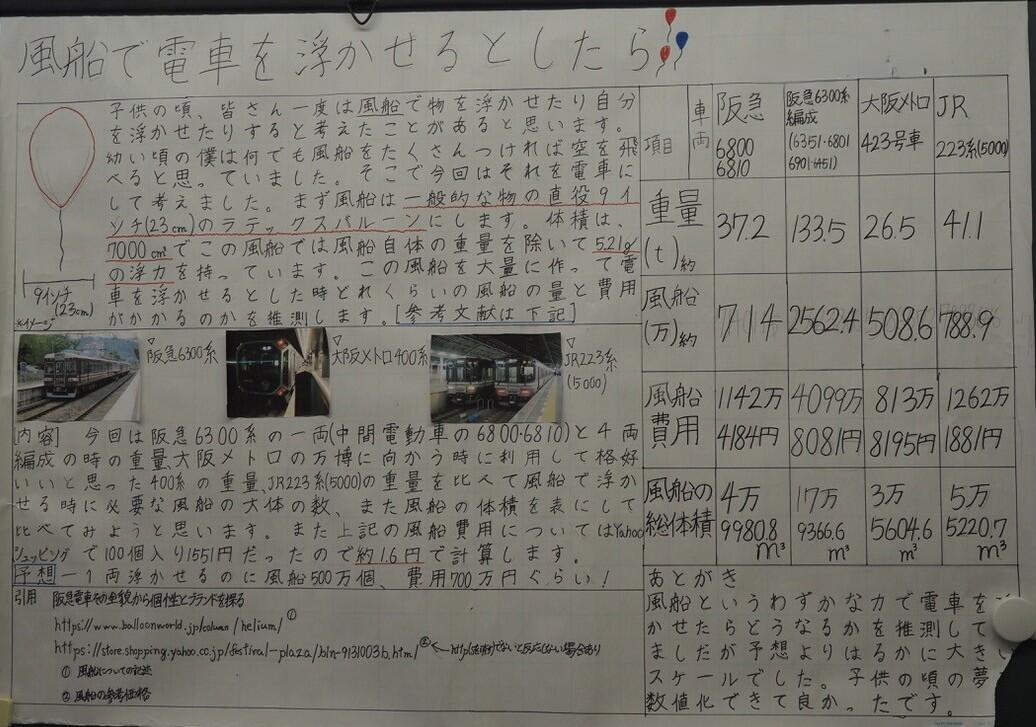 風船で電車を浮かせるとしたら
子供の頃、皆さん一度は風船で物を浮かせたり自分
を浮かせたりすると考えたことがあると思います。
幼い頃の僕は何でも風船をたくさんつければ空を飛
べると思っていました。そこで今回はそれを電車に
して考えました。まず風船は一般的な物の直役9イ
ンチ(23cm)のラテックスバルーンにします。体積は、
7000cm³でこの風船では風船自体の重量を除いて5.21g
の浮力を持っています。この風船を大量に作って電
車を浮かせるとした時どれくらいの風船の量と費用
がかかるのかを推測します。[参考文献は下記]
9インチ
(23cm)
*イメージ
▽阪急6300系
▽大阪メトロ400系
▽JR223系
(5000)
[内容] 今回は阪急6300系の一両(中間電動車の6800・6810)と4両
編成の時の重量、大阪メトロの万博に向かう時に利用して格好
いいと思った400系の重量、JR223系(5000)の重量を比べて風船で浮か
せる時に必要な風船の大体の数、また風船の体積を表にして
比べてみようと思います。また上記の風船費用についてはYahoo
ショッピングで100個入り1551円だったので約1.6円で計算します。
予想ー1両浮かせるのに風船500万個、費用700万円ぐらい!
引用 阪急電車その全貌から個性とブランドを探る
https://www.balloonworld.jp/column/helium/ ①
https://store.shopping.yahoo.co.jp/festival-plaza/bln-9131003b.html ②
① 風船についての記述
② 風船の参考価格
項目 車両 阪急 6800 6810 阪急6300系編成 (6351・6801 6901・6451) 大阪メトロ 423号車 JR 223系(5000)
重量(t)約 37.2 133.5 26.5 41.1
風船(万)約 714 2562.4 508.6 788.9
風船費用 1142万4184円 4099万8081円 813万8195円 1262万1881円
風船の総体積 4万9980.8m³ 17万9366.6m³ 3万5604.6m³ 5万5220.7m³
あとがき
風船というわずかな力で電車を
かせたらどうなるかを推測して
ましたが予想よりはるかに大きい
スケールでした。子供の頃の夢
数値化できて良かったです。